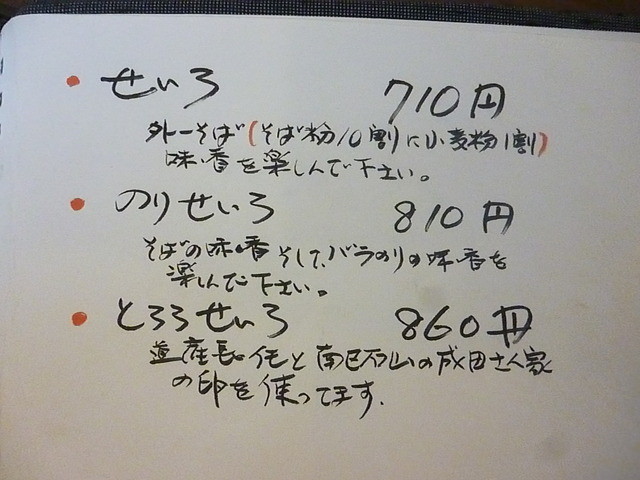 せいろ 710円
外一そば(そば粉10割に小麦粉1割)
味・香を楽しんで下さい。
のりせいろ 810円
そばの味・香そして、バラのりの味・香を
楽しんで下さい。
とろろせいろ 860円
道産長イモと南区石山の成田さん家
の卵を使ってます.